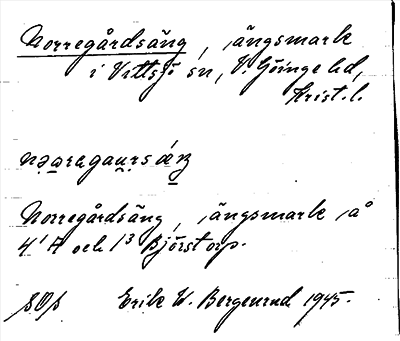 Norregårdsäng, ängsmark
i Vittsjö sn, V. Göinge hd,
Krist. l.
Norregårdsäng, ängsmark på
4¹ A och 1³ Björstorp.
Erik W. Bergenrud 1945.